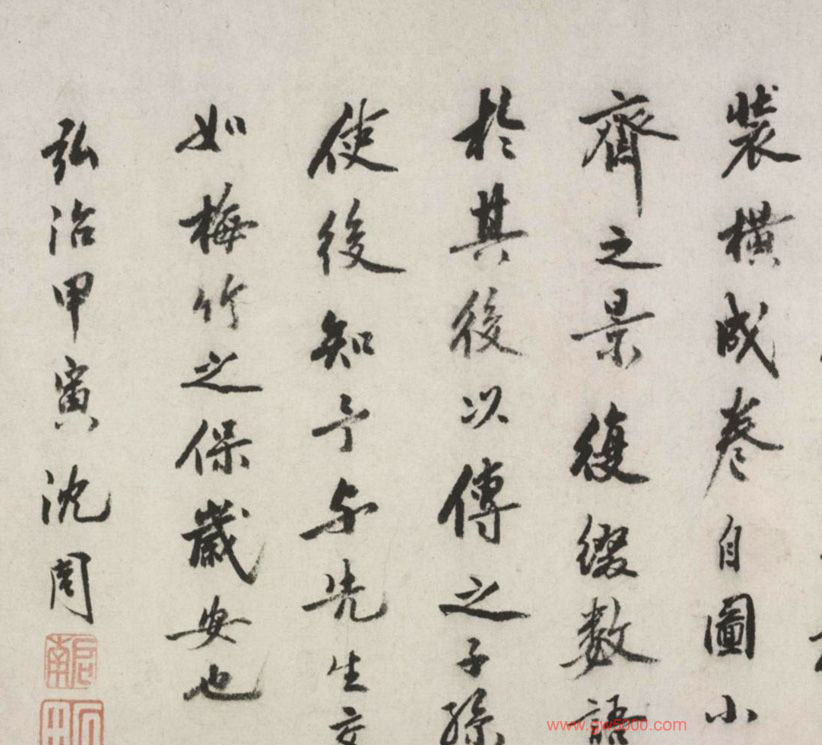 装橫成卷自圖小
齋之景復綴數語
於其後以傳之子孫
使後知予与先生交
如梅竹之保歲安也
弘治甲寅沈周
啟南
www.gw5000.com